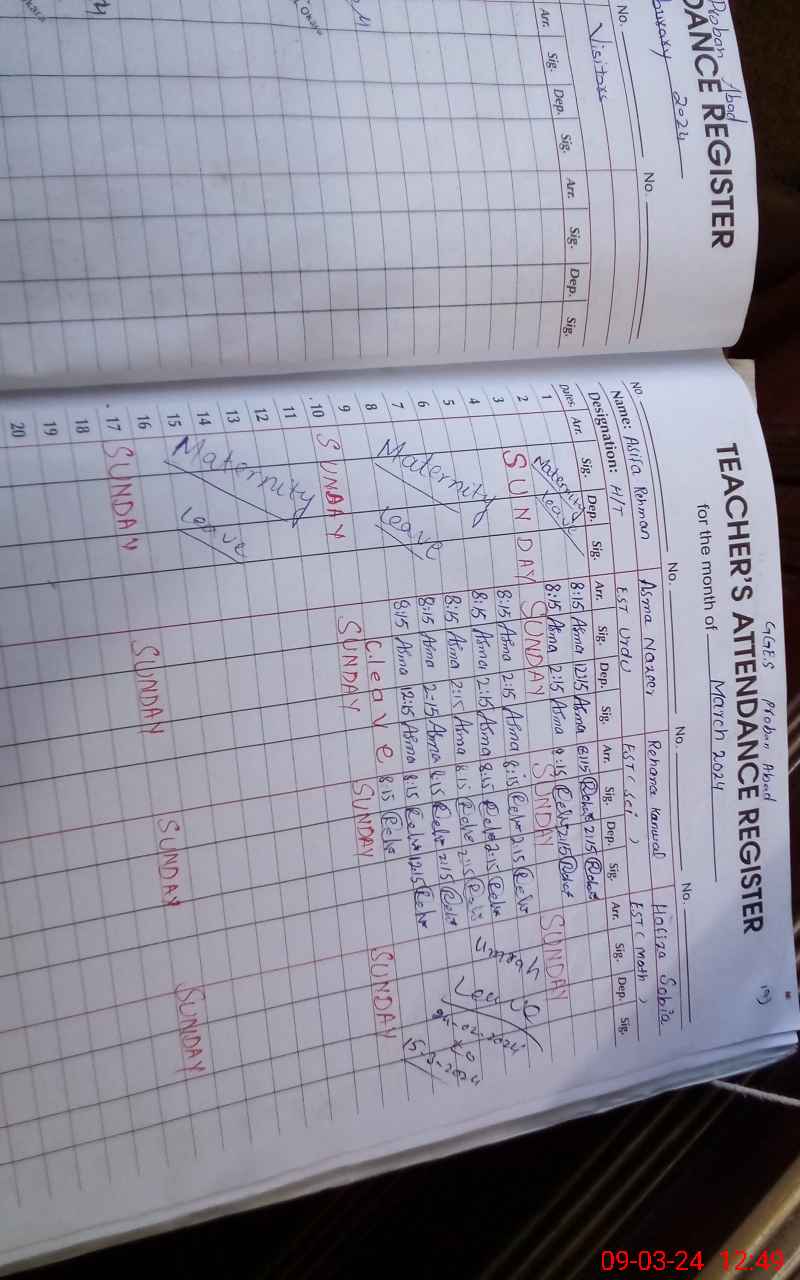 Ploban Abad
DANCE REGISTER
2024
No. No.
Visitors
Arr. Sig. Dep. Sig. Arr. Sig. Dep. Sig.
GGES Ploban Abad
TEACHER'S ATTENDANCE REGISTER
for the month of March 2024
No. No. No. No.
Name: Asifa Rehman Asma Nazeer Rehana Kanwal Hafiza Sobia
Designation: H/T EST Urdu EST (Sci) EST (Math)
Dates Arr. Sig. Dep. Sig. Arr. Sig. Dep. Sig. Arr. Sig. Dep. Sig. Arr. Sig. Dep. Sig.
1 Maternity Leave 8:15 Asma 12:15 Asma 8:15 12:15
2 8:15 Asma 2:15 Asma 8:15 2:15
3 SUNDAY SUNDAY SUNDAY SUNDAY
4 8:15 Asma 2:15 Asma 8:15 2:15
5 8:15 Asma 2:15 Asma 8:15 2:15
6 Maternity Leave 8:15 Asma 2:15 Asma 8:15 2:15 Umrah Leave
7 8:15 Asma 2:15 Asma 8:15 2:15 to
8 8:15 Asma 12:15 Asma 8:15 12:15 15-3-2024
9 C.leave 8:15
10 SUNDAY SUNDAY SUNDAY SUNDAY
11
12
13 Maternity Leave
14
15
16
17 SUNDAY SUNDAY SUNDAY SUNDAY
18
19
20
09-03-24 12:49